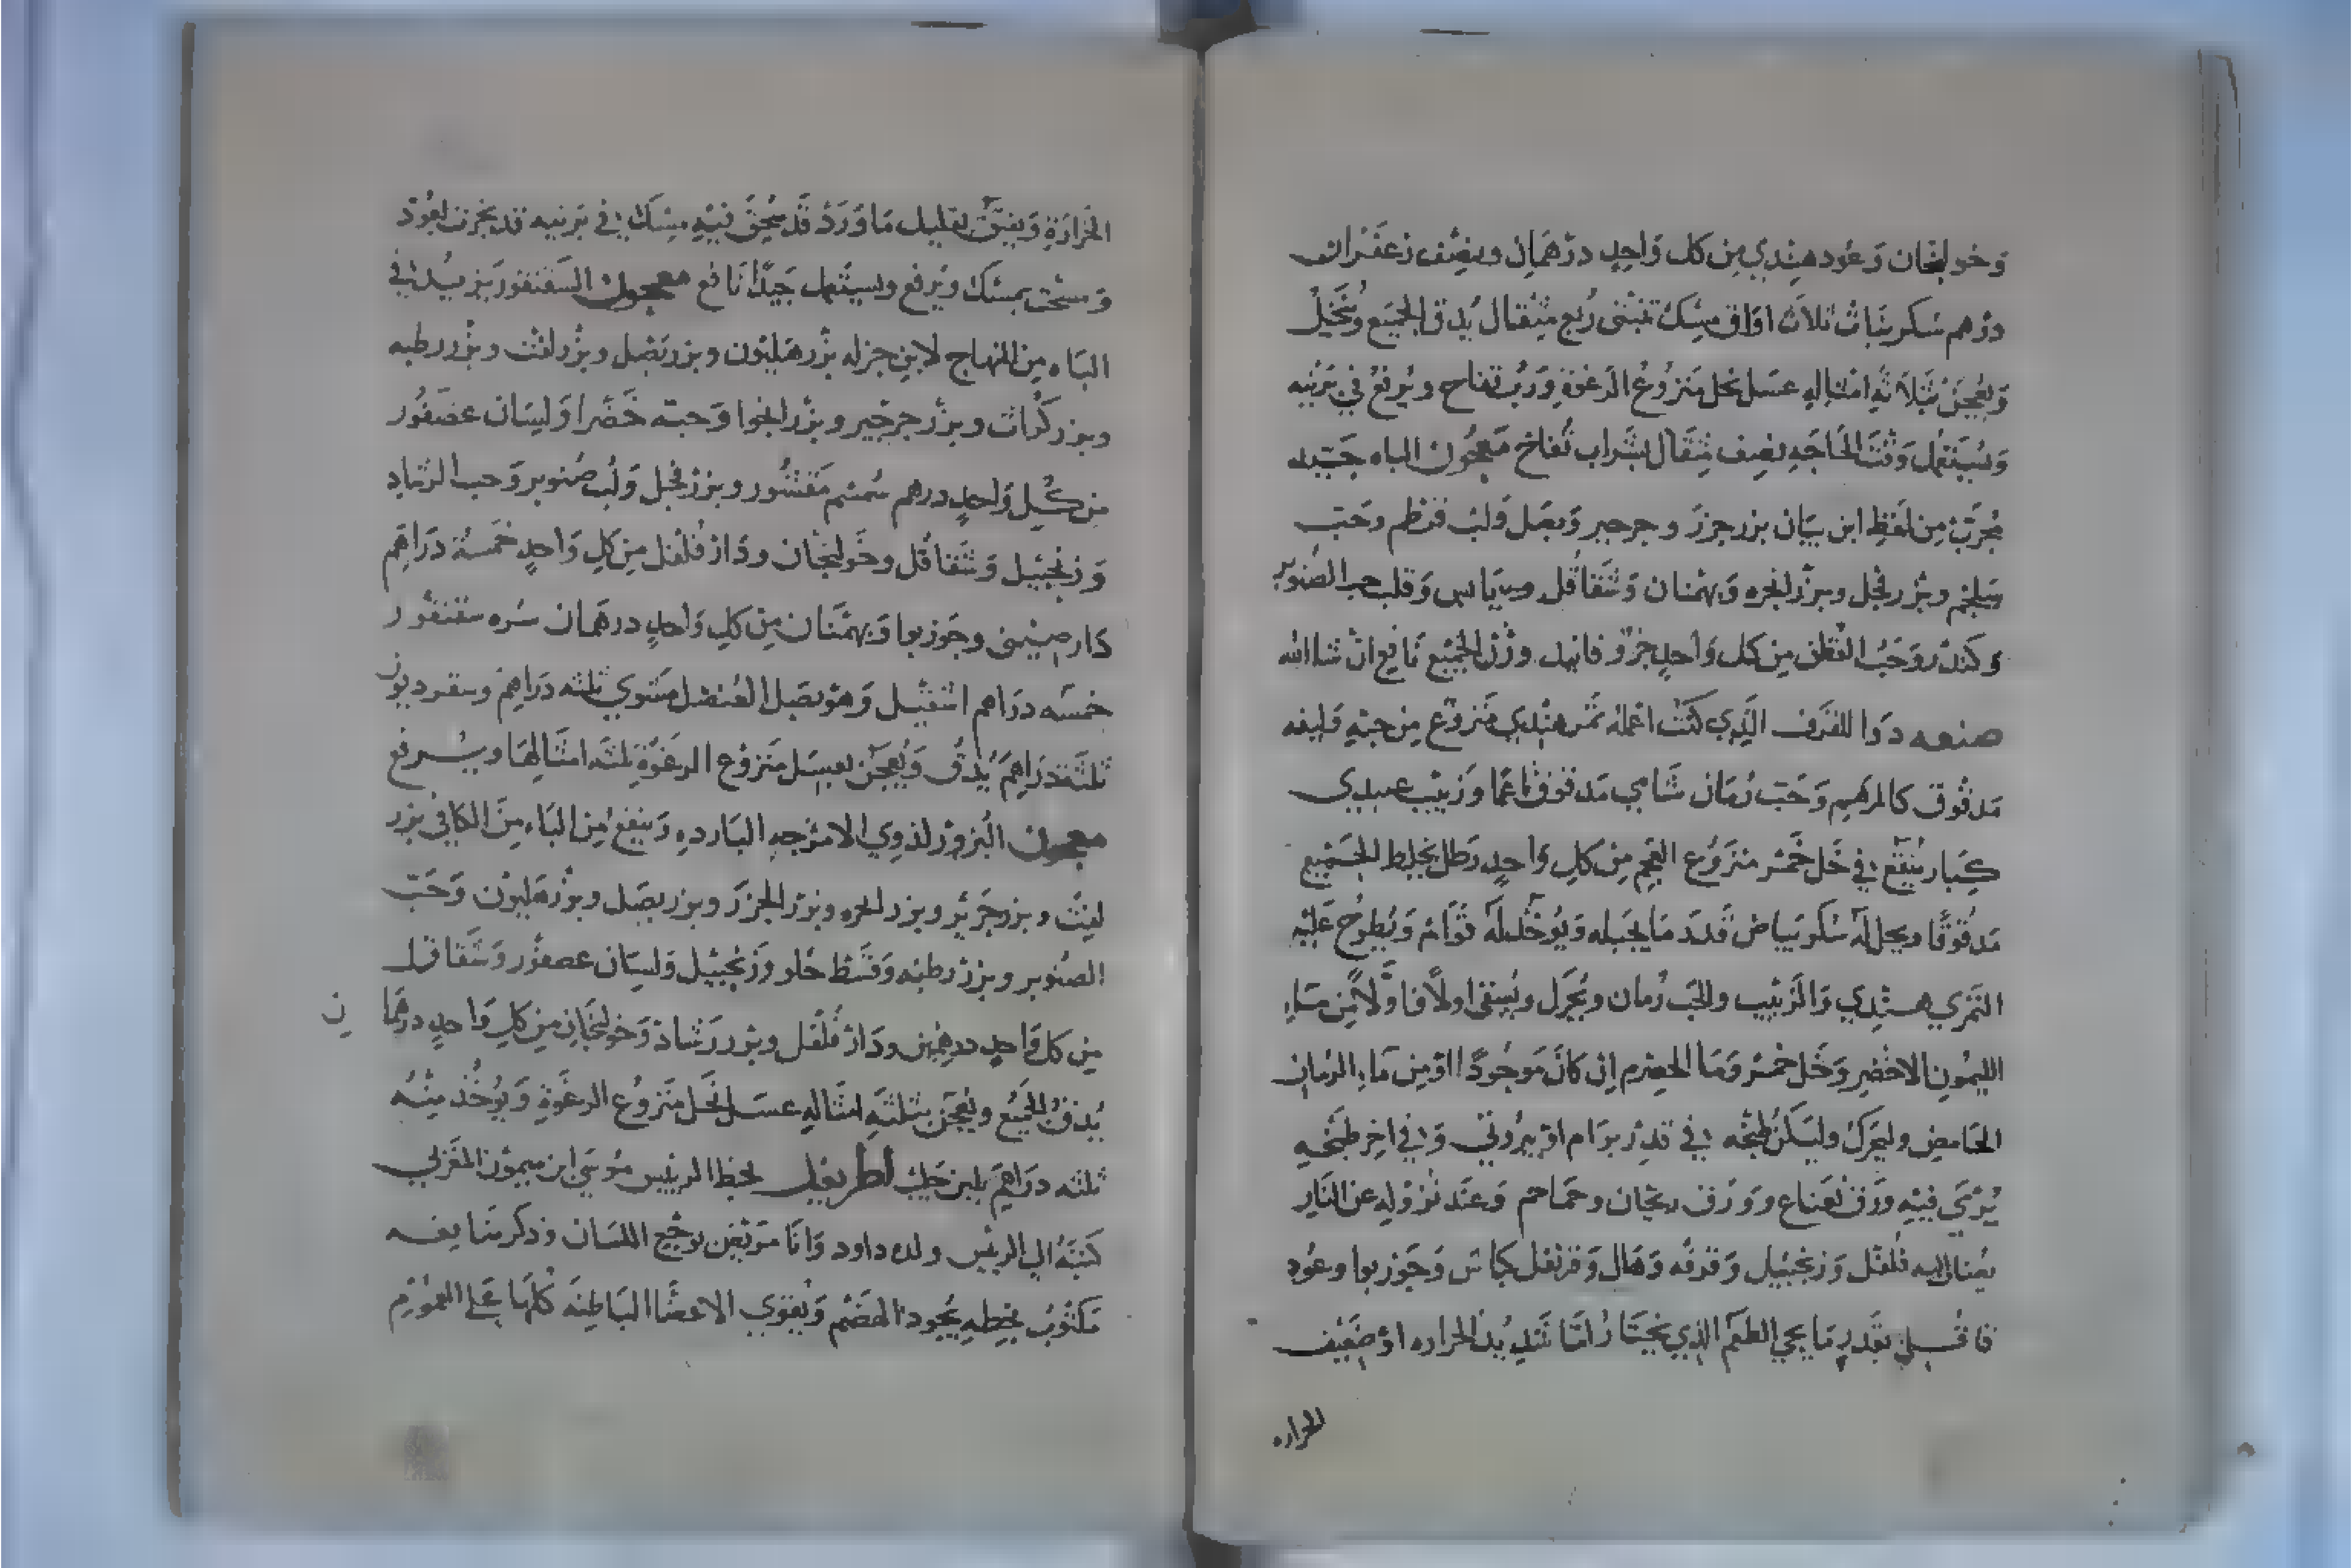 وخولنجان وعود هندي من كل واحد درهمان ونصف زعفران
درهم سكر نبات ثلاث اواق مسك تبتى ربع مثقال يدق الجميع وينخل
ويعجن بثلاثة امثاله عسل نحل منزوع الرغوة ورب تفاح ويرفع في برنيه
ويستعمل وقت الحاجه نصف مثقال بشراب تفاح معجون الباه جيد
مجرب من لفظ ابن بيان بزر جزر وجرجير وبصل ولب قرطم وحب
سلجم وبزر فجل وبزر انجره وبهمنان وشقاقل وقلب حب الصنوبر
وكندر وحب القطن من كل واحد جزو فانيد وزن الجميع نافع ان شا الله
صنعه دوا للقرف الذي كنت اعمله تمر هندي منزوع من حبه وليفه
مدقوق كالمرهم وحب رمان شامي مدقوق ناعما وزبيب عبيدي
كبار ينقع في خل خمر منزوع العجم من كل واحد رطل يخلط الجميع
مدقوقا ويحل له سكر بياض قدر ما يحبله ويوخذ له قوام ويطرح عليه
التمري هندي والزبيب والحب رمان ويحرك ويسقى اولا فاولا من ماء
الليمون الاخضر وخل خمر وما الحصرم ان كان موجودا او من ماء الرمان
الحامض وليحرك وليكن طبخه في قدر برام او بيروتي وفي اخر طبخه
يرمى فيه ورق نعناع وورق ريحان وحماحم وعند نزوله عن النار
يضاف اليه فلفل وزنجبيل وقرفه وهال وقرنفل كباش وجوزبوا وعود
قاقلي بقدر ما يجي الطعم الذي يختار اما شديد الحراره او ضعيف
الحراره
الحرارة ويفتق بقليل ماورد قد سحق فيه مسك في برنيه قد بخرت بعود
ومسحت بمسك ويرفع ويستعمل جيدا نافع معجون السقنقور يزيد في
الباه من المنهاج لابن جزله بزر هليون وبزر بصل وبزر لفت وبزر رطبه
وبزر كراث وبزر جرجير وبزر انجرا وحبة خضرا ولسان عصفور
من كل واحد درهم سمسم مقشور وبزر فجل ولب صنوبر وحب الرشاد
وزنجبيل وشقاقل وخولنجان ودار فلفل من كل واحد خمسة دراهم
دارصيني وجوزبوا وبهمنان من كل واحد درهمان سره سقنقور
خمسه دراهم اشقيل وهو بصل العنصل مشوي ثلثه دراهم وسقرديون
ثلثة دراهم يدق ويعجن بعسل منزوع الرغوة ثلثة امثالها ويرفع
معجون البزور لذوي الامزجه البارده وينفع من الباه من الكافي بزر
لفت وبزر جرجير وبزر انجره وبزر الجزر وبزر بصل وبزر هليون وحب
الصنوبر وبزر رطبه وقسط حلو وزنجبيل ولسان عصفور وشقاقل
من كل واحد درهمين ودار فلفل وبزر رشاد وخولنجان من كل واحد درهمان
يدق الجميع ويعجن بثلثة امثاله عسل نحل منزوع الرغوة ويوخذ منه
ثلثه دراهم بلبن حليب اطريفل بخط الرييس موسى ابن ميمون المغربي
كتبه الى الرييس ولده داود وانا موثقن بوجيج اللسان وذكر منافعه
مكتوب بخطه يجود الهضم ويقوي الاعضا الباطنه كلها على العموم